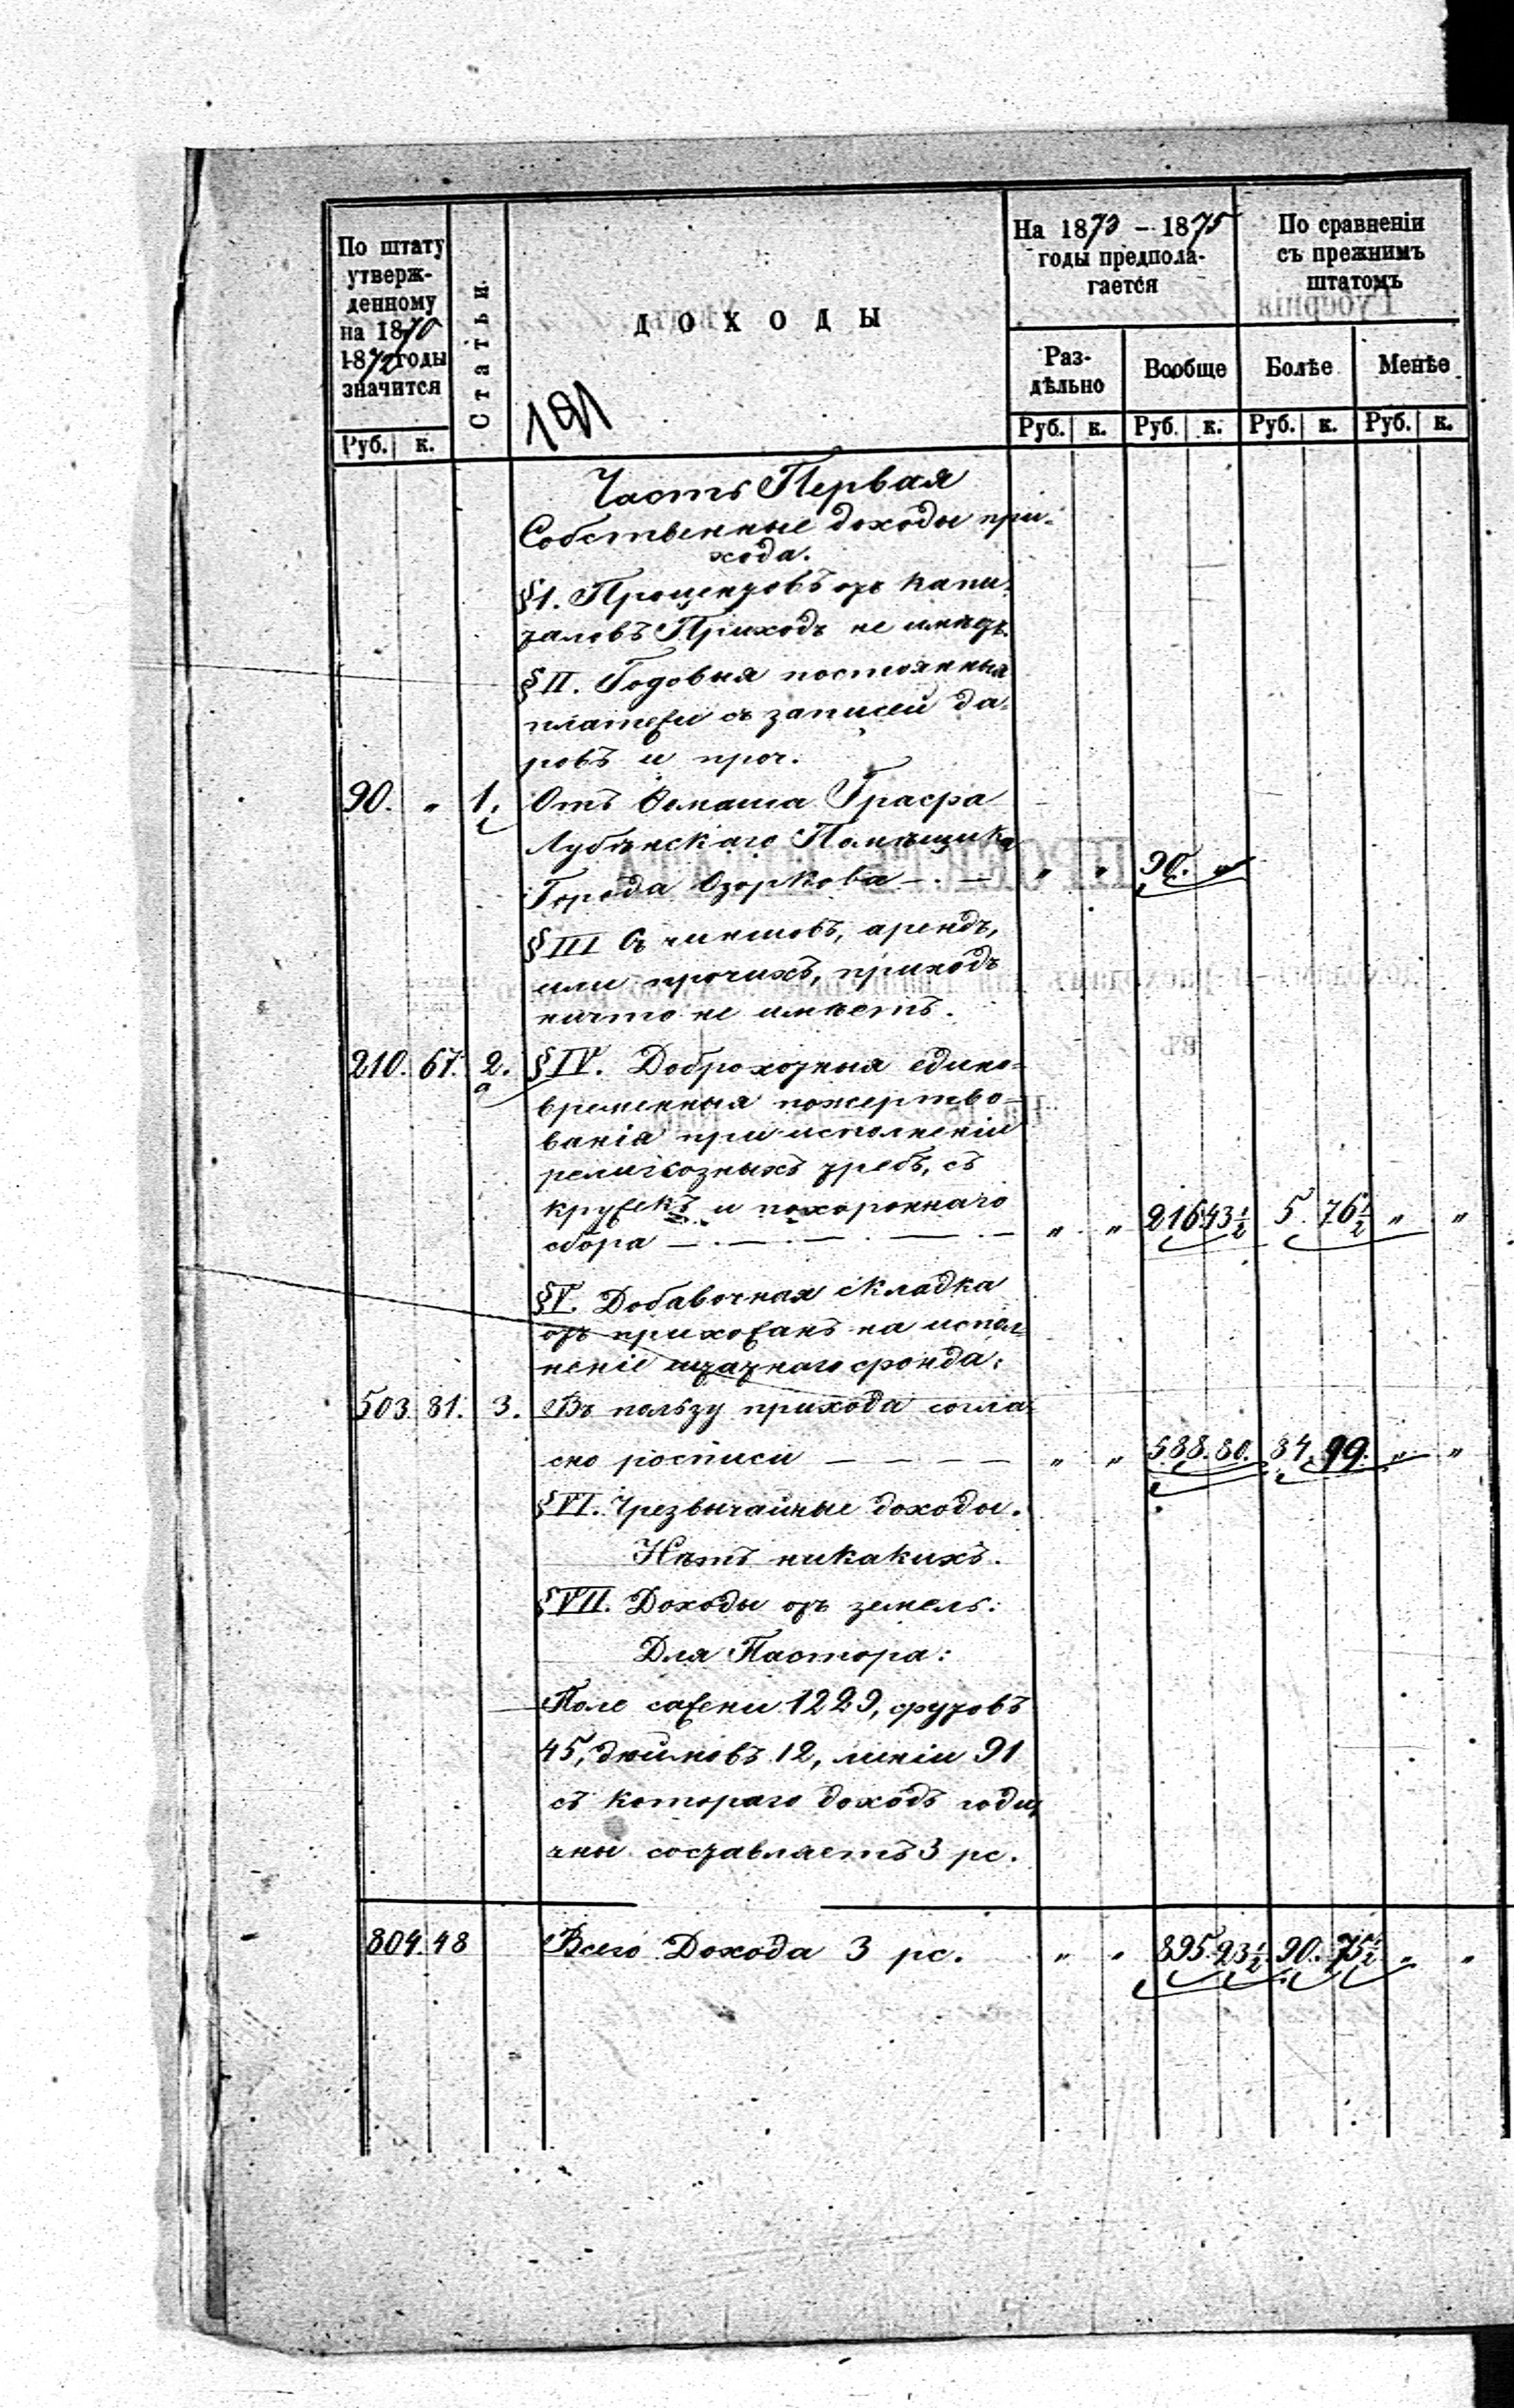 По штату
утверж-
денному
на 1870
1872 годы
значится
Статьи.
ДОХОДЫ
191
На 1873 – 1875
годы предпола-
гается
По сравненіи
съ прежнимъ
штатомъ
Раз-
дѣльно
Вообще
Болѣе
Менѣе
Руб. к.
Руб. к. Руб. к. Руб. к. Руб. к.
Часть Первая
Собственные доходы при-
хода.
§ I. Процентовъ отъ капи-
таловъ Приходъ не имѣетъ.
§ II. Годовыя постоянныя
платежи съ записей да-
ровъ и проч.
90. „ 1. Отъ Графа
Лубенскаго Помѣщика
Города Озоркова — . — „ „ 90. „
§ III Съ чиншовъ, арендъ,
или прочихъ, приходъ
ничто не имѣетъ.
210. 67. 2. § IV. Доброхотныя едино-
временныя пожертво-
ванія при исполненіи
религіозныхъ требъ, съ
кружекъ и похороннаго
сбора — . — . — . — . — „ „ 216 43½ 5. 76½ „ „
§ V. Добавочная складка
отъ прихожанъ на испол-
неніе штатнаго фонда:
503. 81. 3. Въ пользу прихода согла-
сно росписи — — — — „ „ 588. 80. 84. 99. „ „
§ VI. Чрезвычайные доходы.
Нѣтъ никакихъ.
§ VII. Доходы отъ земель:
Для Пастора:
Поле сажени 1229, футовъ
45, дюймовъ 12, линіи 91
съ котораго доходъ годи-
чны составляетъ 3 рс.
804. 48 Всего Дохода 3 рс. „ „ 895. 23½ 90. 75½ „ „